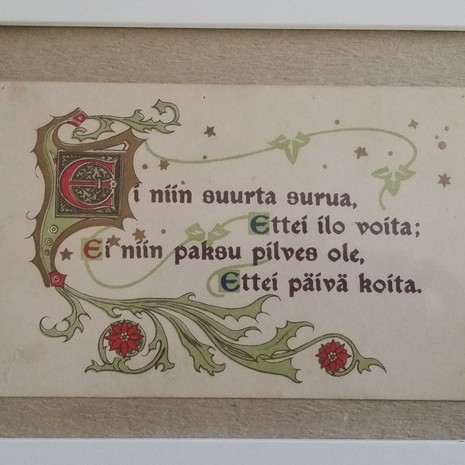 Ei niin suurta surua,
Ettei ilo voita;
Ei niin paksu pilves ole,
Ettei päivä koita.